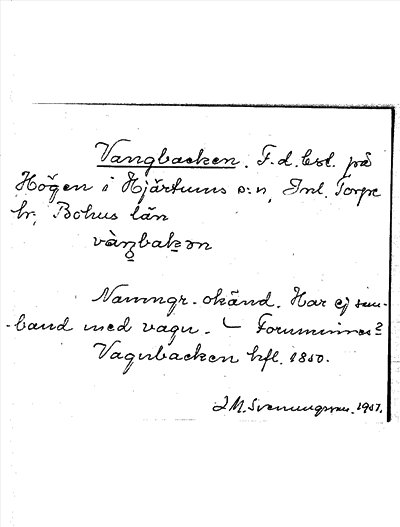 Vangbacken. F.d. bst. på
Högen i Hjärtums s:n, Inl. Torpe
hr, Bohus län
vàŋbakən
Namngr. okänd. Har ej sam-
-band med vagn. – Fornminnes?
Vagnbacken hfl. 1850.
J M. Svenungsson. 1957.